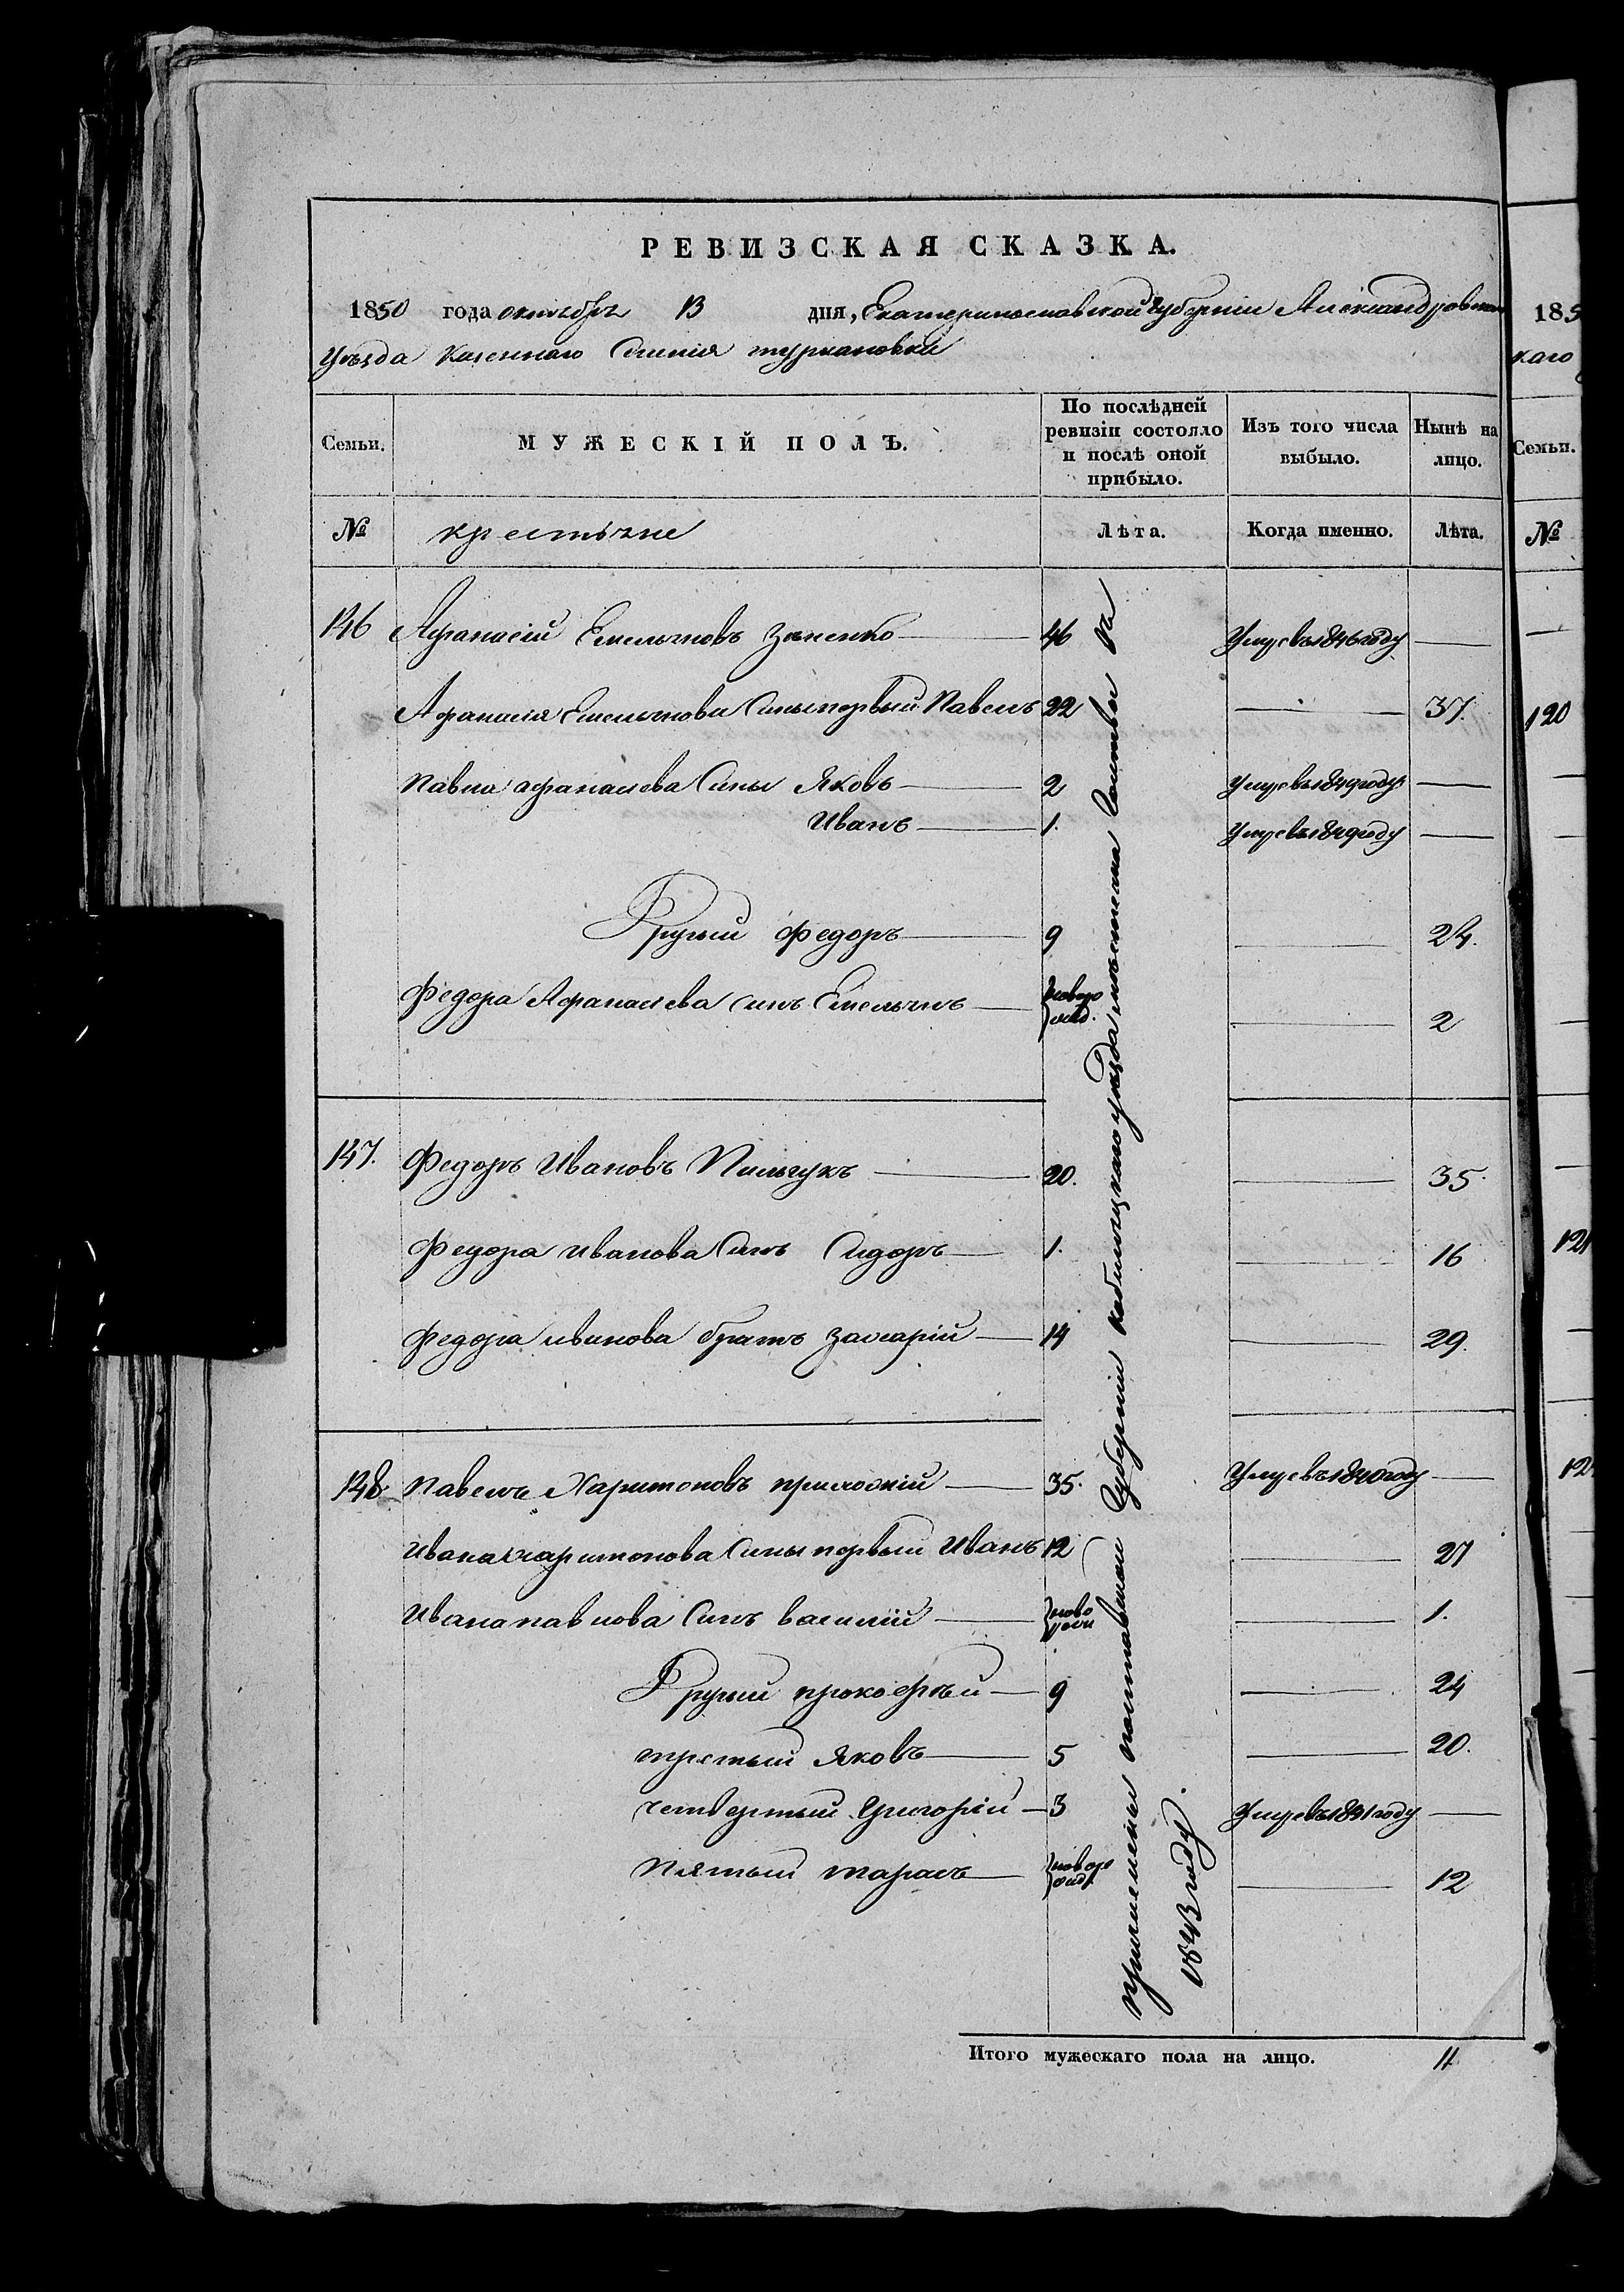 РЕВИЗСКАЯ СКАЗКА.
1850 года октября 13 дня, Екатеринославской Губернии Александровскаго
Уѣзда Казеннаго Селенія туркановки
Семьи. МУЖЕСКІЙ ПОЛЪ. По послѣдней ревизіи состояло и послѣ оной прибыло. Изъ того числа выбыло. Нынѣ на лицо.
№ крестьяне Лѣта. Когда именно. Лѣта.
146 Афанасій Емельяновъ 46 Умре въ 1846 году —
Афанасія Емельянова Сины первый Павелъ 22 — 37.
Павла афанасиева Сины Яковъ 2 Умре въ 1849 году —
Иванъ 1. Умре въ 1849 году —
Другий Федоръ 9 — 24.
Федора Афанасиева синъ Емельянъ новорожд. — 2
147. Федоръ Ивановъ Пильчукъ 20. — 35.
Федора иванова Синъ Сидоръ 1. — 16
Федора иванова братъ захарій 14 — 29.
148. Павелъ Харитоновъ 35. Умре въ 1840 году —
Ивана харитонова Сины первый Иванъ 12 — 27
Ивана павлова Синъ василій новорож — 1.
Другий прокофѣй 9 — 24
третый Яковъ 5 — 20.
четвертый Григорій 3 Умре въ 1841 году —
Пятый тарасъ новорожд — 12
причислены полтавской Губерніи кобыляцкаго уѣзда
1843 году.
Итого мужескаго пола на лицо. 11
185
каго
Семьи.
№
120
121
12